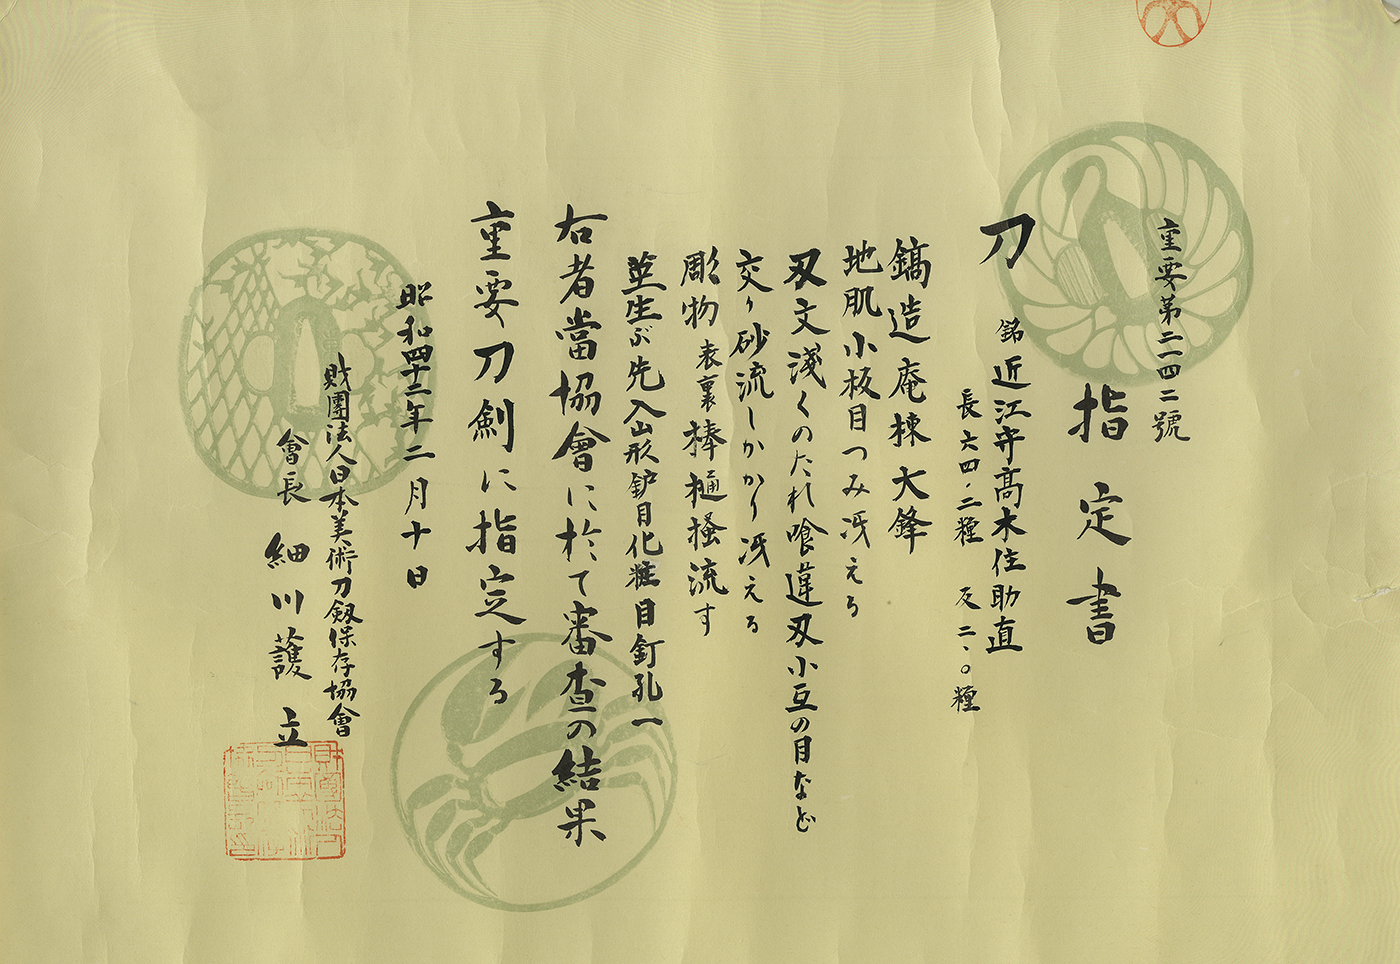 重要第二一四二號
指定書
刀
銘 近江守髙木住助直
長 六四・二糎 反 二、〇糎
鎬造庵棟大鋒
地肌小板目つみ冴える
刄文淺くのたれ喰違刄小互の目など
交り砂流しかかり冴える
彫物 表裏 棒樋掻流す
茎生ぶ先入山形鈩目化粧目釘孔一
右者當協會に於て審査の結果
重要刀劍に指定する
昭和四十二年二月十日
財團法人日本美術刀劔保存協會
會長 細川護立